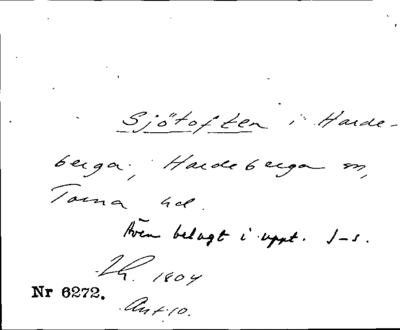 Sjötoften i Harde-
berga; Hardeberga sn,
Torna hd.
Även belagt i uppt. J-s.
1804
Nr 6272.
Ant. 10.